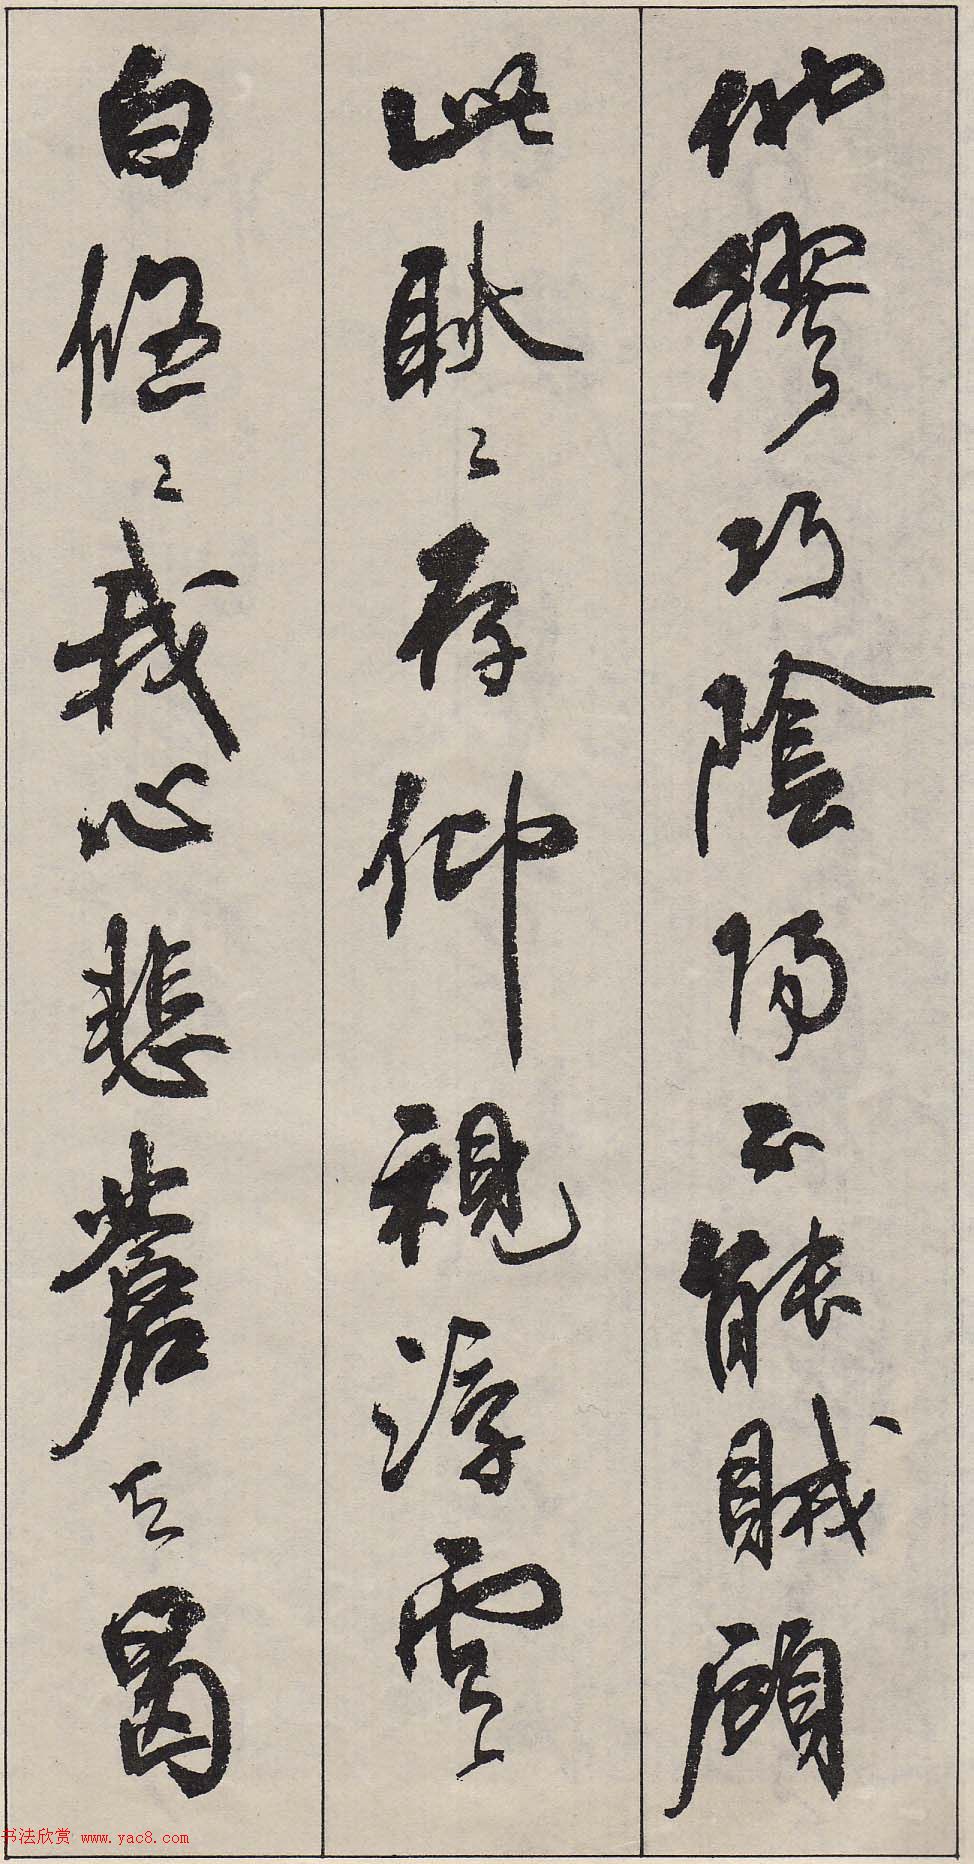 他繆巧陰陽不能賊顧
此耿〻存仰視浮雲
白悠〻我心悲蒼天曷
书法欣赏 www.yac8.com